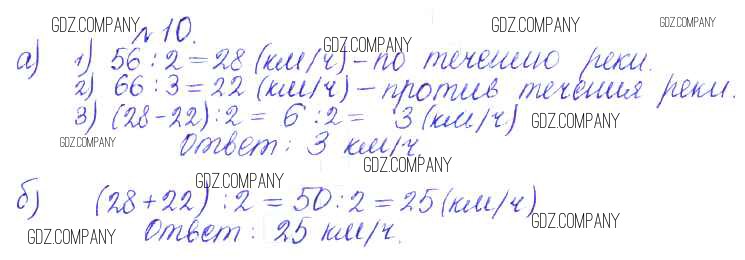 GDZ.COMPANY GDZ.COMPANY GDZ.COMPANY
№ 10.
GDZ.COMPANY
а) 1) 56 : 2 = 28 (км/ч) – по течению реки.
2) 66 : 3 = 22 (км/ч) – против течения реки.
3) (28 - 22) : 2 = 6 : 2 = 3 (км/ч) GDZ.COMPANY
GDZ.COMPANY Ответ : 3 км/ч.
GDZ.COMPANY
GDZ.COMPANY
б) (28 + 22) : 2 = 50 : 2 = 25 (км/ч)
GDZ.COMPANY Ответ : 25 км/ч. GDZ.COMPANY